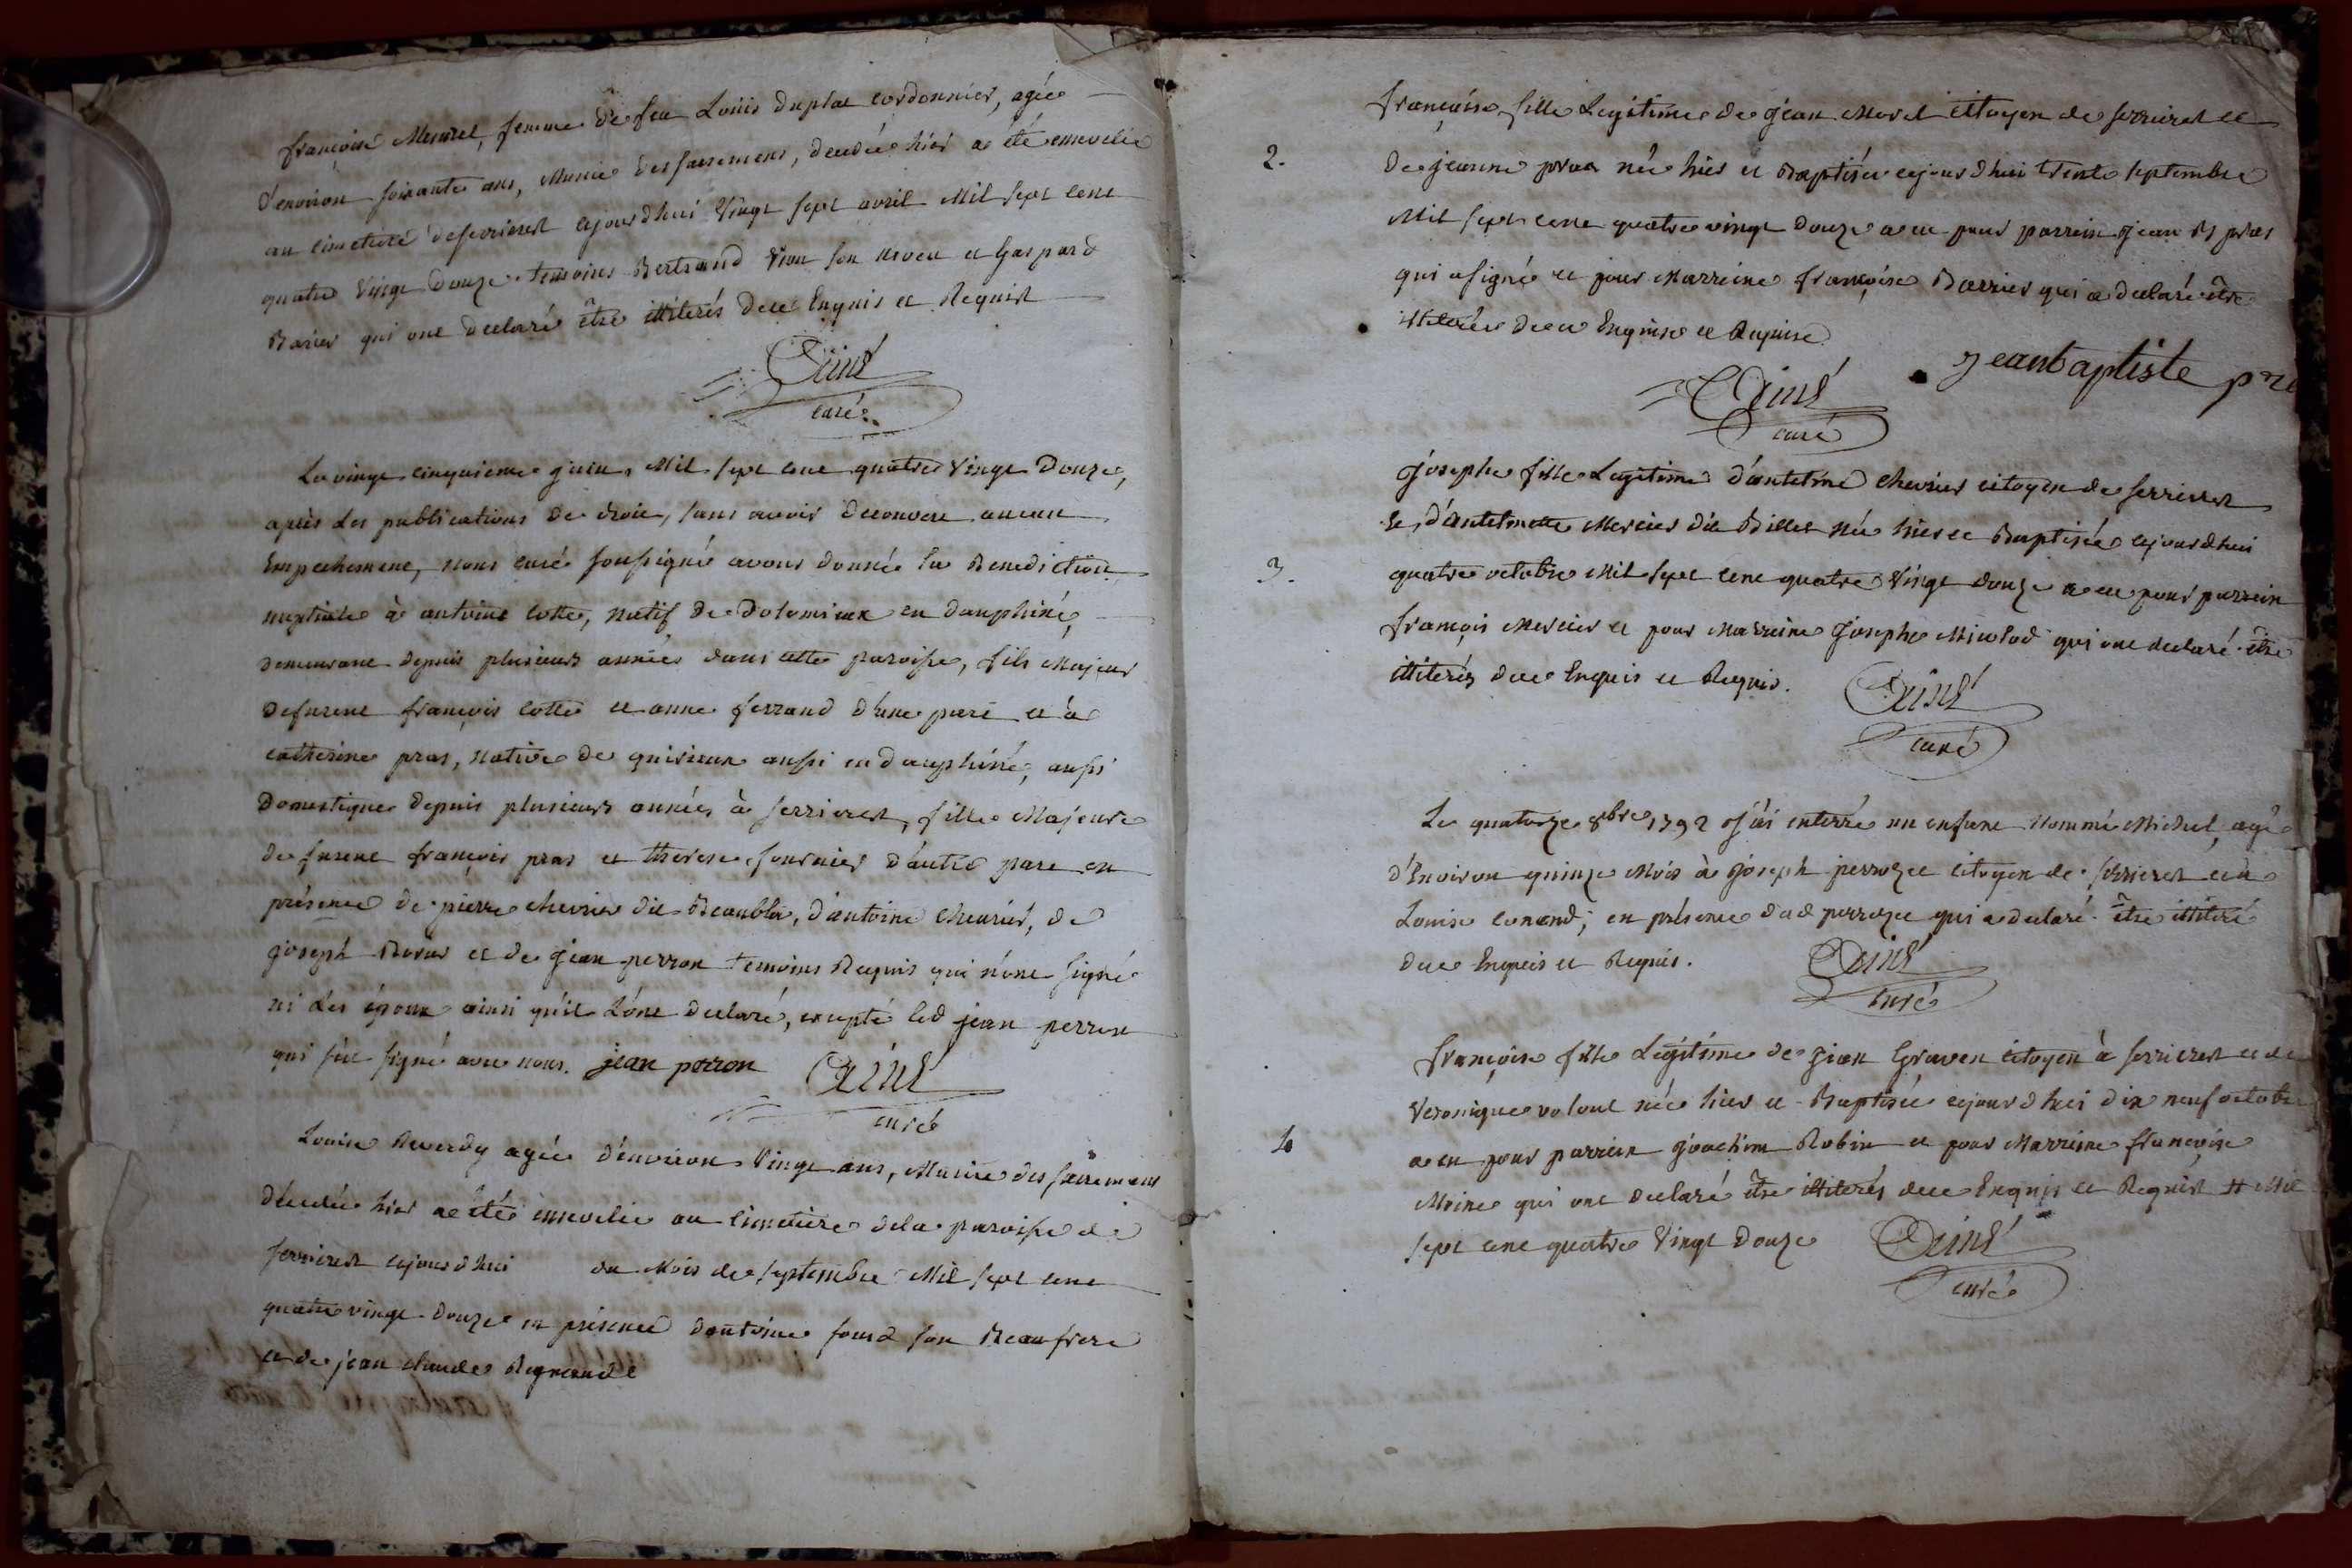 françoise Mesurel, femme de feu Loüis duplat cordonnier, agée
d'environ soixante ans, Munie des sacremens, decedée hier a été ensevelie
au cimetiere de serrieres cejourd'hui vingt sept avril Mil sept cent
quatre vingt Douze. temoins Bertrand vion son neveu et Gaspard
Barier qui ont declaré être illiterés de ce Enquis et Requis
curé
Le vingt cinquieme juin, Mil sept cent quatre vingt Douze,
après les publications de droit, sans avoir decouvert aucun
Empechement, nous curé soussigné avons donnée la Benediction
nuptiale à antoine cotte, natif de Dolomieux en dauphiné,
demeurant depuis plusieurs années dans cette paroisse, fils Majeur
de furent françois cotte et anne ferrand d'une part et à
catherine pras, native de quirieux aussi en dauphiné, aussi
Domestique depuis plusieurs années à serrieres, fille Majeure
de furent françois pras et therese fournier d'autre part en
présence de pierre chevrier dit d'antoine chevrier, de
joseph et de jean perron temoins Requis qui n'ont signé
ni les époux ainsi qu'il l'ont declaré, excepté led jean perron
qui s'est signé avec nous. jean perron
curé
Louise Reverdy agée d'environ vingt ans, Munie des sacremens
décedée hier a été ensevelie au cimetiere de la paroisse de
serrieres cejourd'hui du Mois de septembre Mil sept cent
quatre vingt Douze en présence d'antoine son Beau frere
et de jean claude
françoise fille Legitime de jean Morel citoyen de serrieres et
2.
de jeanne pras née hier et Baptisée cejourd'hui trente septembre
Mil sept cent quatre vingt Douze a eu pour parrein jean B pras
qui a signé et pour Marreine françoise Barrier qui a declaré être
illiterée de ce Enquise et Requise
jeanbaptiste pra
curé
josephe fille Legitime d'antelme chevrier citoyen de serrieres
et d'antelmette Mercier dit Billet née hier et Baptisée cejourdhui
3.
quatre octobre Mil sept cent quatre vingt douze a eu pour parrein
françois Mercier et pour Marreine josephe Micolod qui ont declaré être
illiterés de ce Enquis et Requis.
curé
Le quatorze 8bre 1792 j'ai enterré un enfant nommé Michel, agé
d'Environ quinze Mois à joseph perrozet citoyen de serrieres et à
Louise en présence dud perrozet qui a declaré être illiteré
de ce Enquis et Requis.
curé
françoise fille Legitime de jean Graven citoyen à serrieres et de
Veronique volant née hier et Baptisée cejourdhui dix neuf octobre
4
a eu pour parrein joachim Robin et pour Marreine françoise
Moine qui ont declaré être illiterés de ce Enquis et Requis # Mil
sept cent quatre vingt Douze
curé